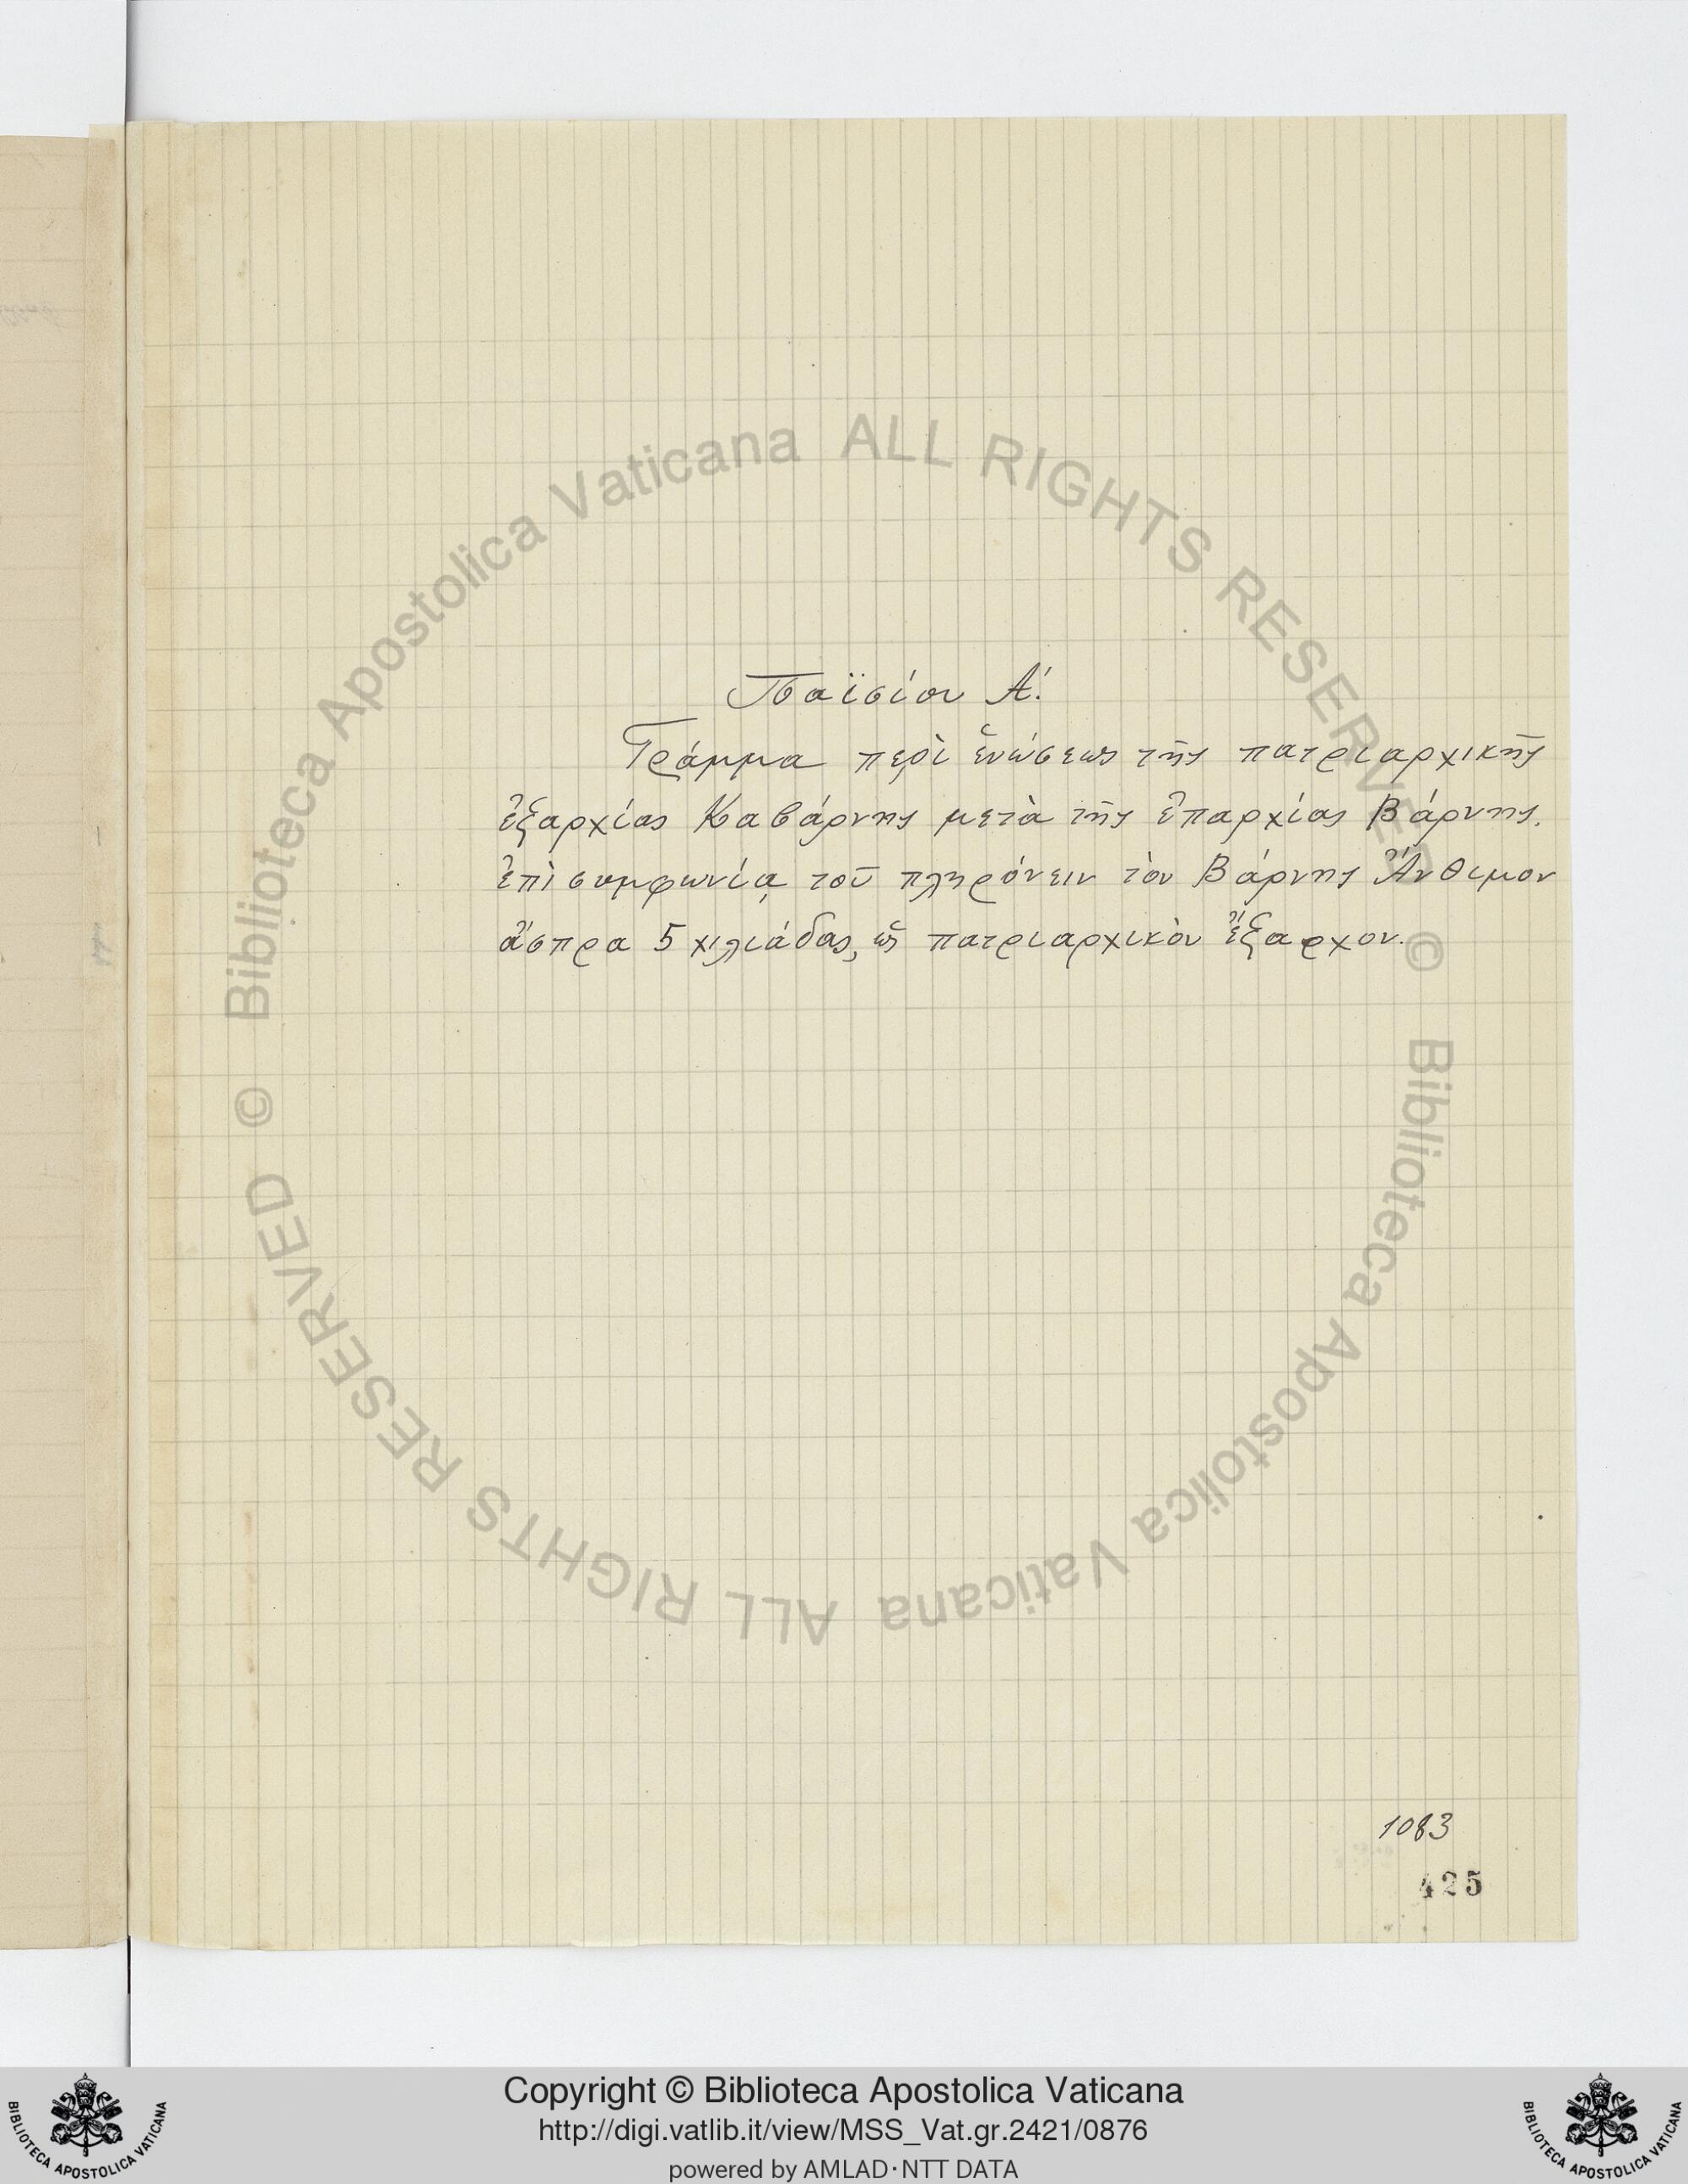 Παϊσίου Α΄.
Γράμμα περὶ ἑνώσεως τῆς πατριαρχικῆς
ἐξαρχίας Καβάρνης μετὰ τῆς ἐπαρχίας Βάρνης.
ἐπὶ συμφωνίᾳ τοῦ πληρόνειν τὸν Βάρνης Ἄνθιμον
ἄσπρα 5 χιλιάδας, ὡς πατριαρχικὸν ἔξαρχον.
1083
425
© Biblioteca Apostolica Vaticana ALL RIGHTS RESERVED
© Biblioteca Apostolica Vaticana ALL RIGHTS RESERVED
Copyright © Biblioteca Apostolica Vaticana
http://digi.vatlib.it/view/MSS_Vat.gr.2421/0876
powered by AMLAD·NTT DATA
BIBLIOTECA APOSTOLICA VATICANA
BIBLIOTECA APOSTOLICA VATICANA